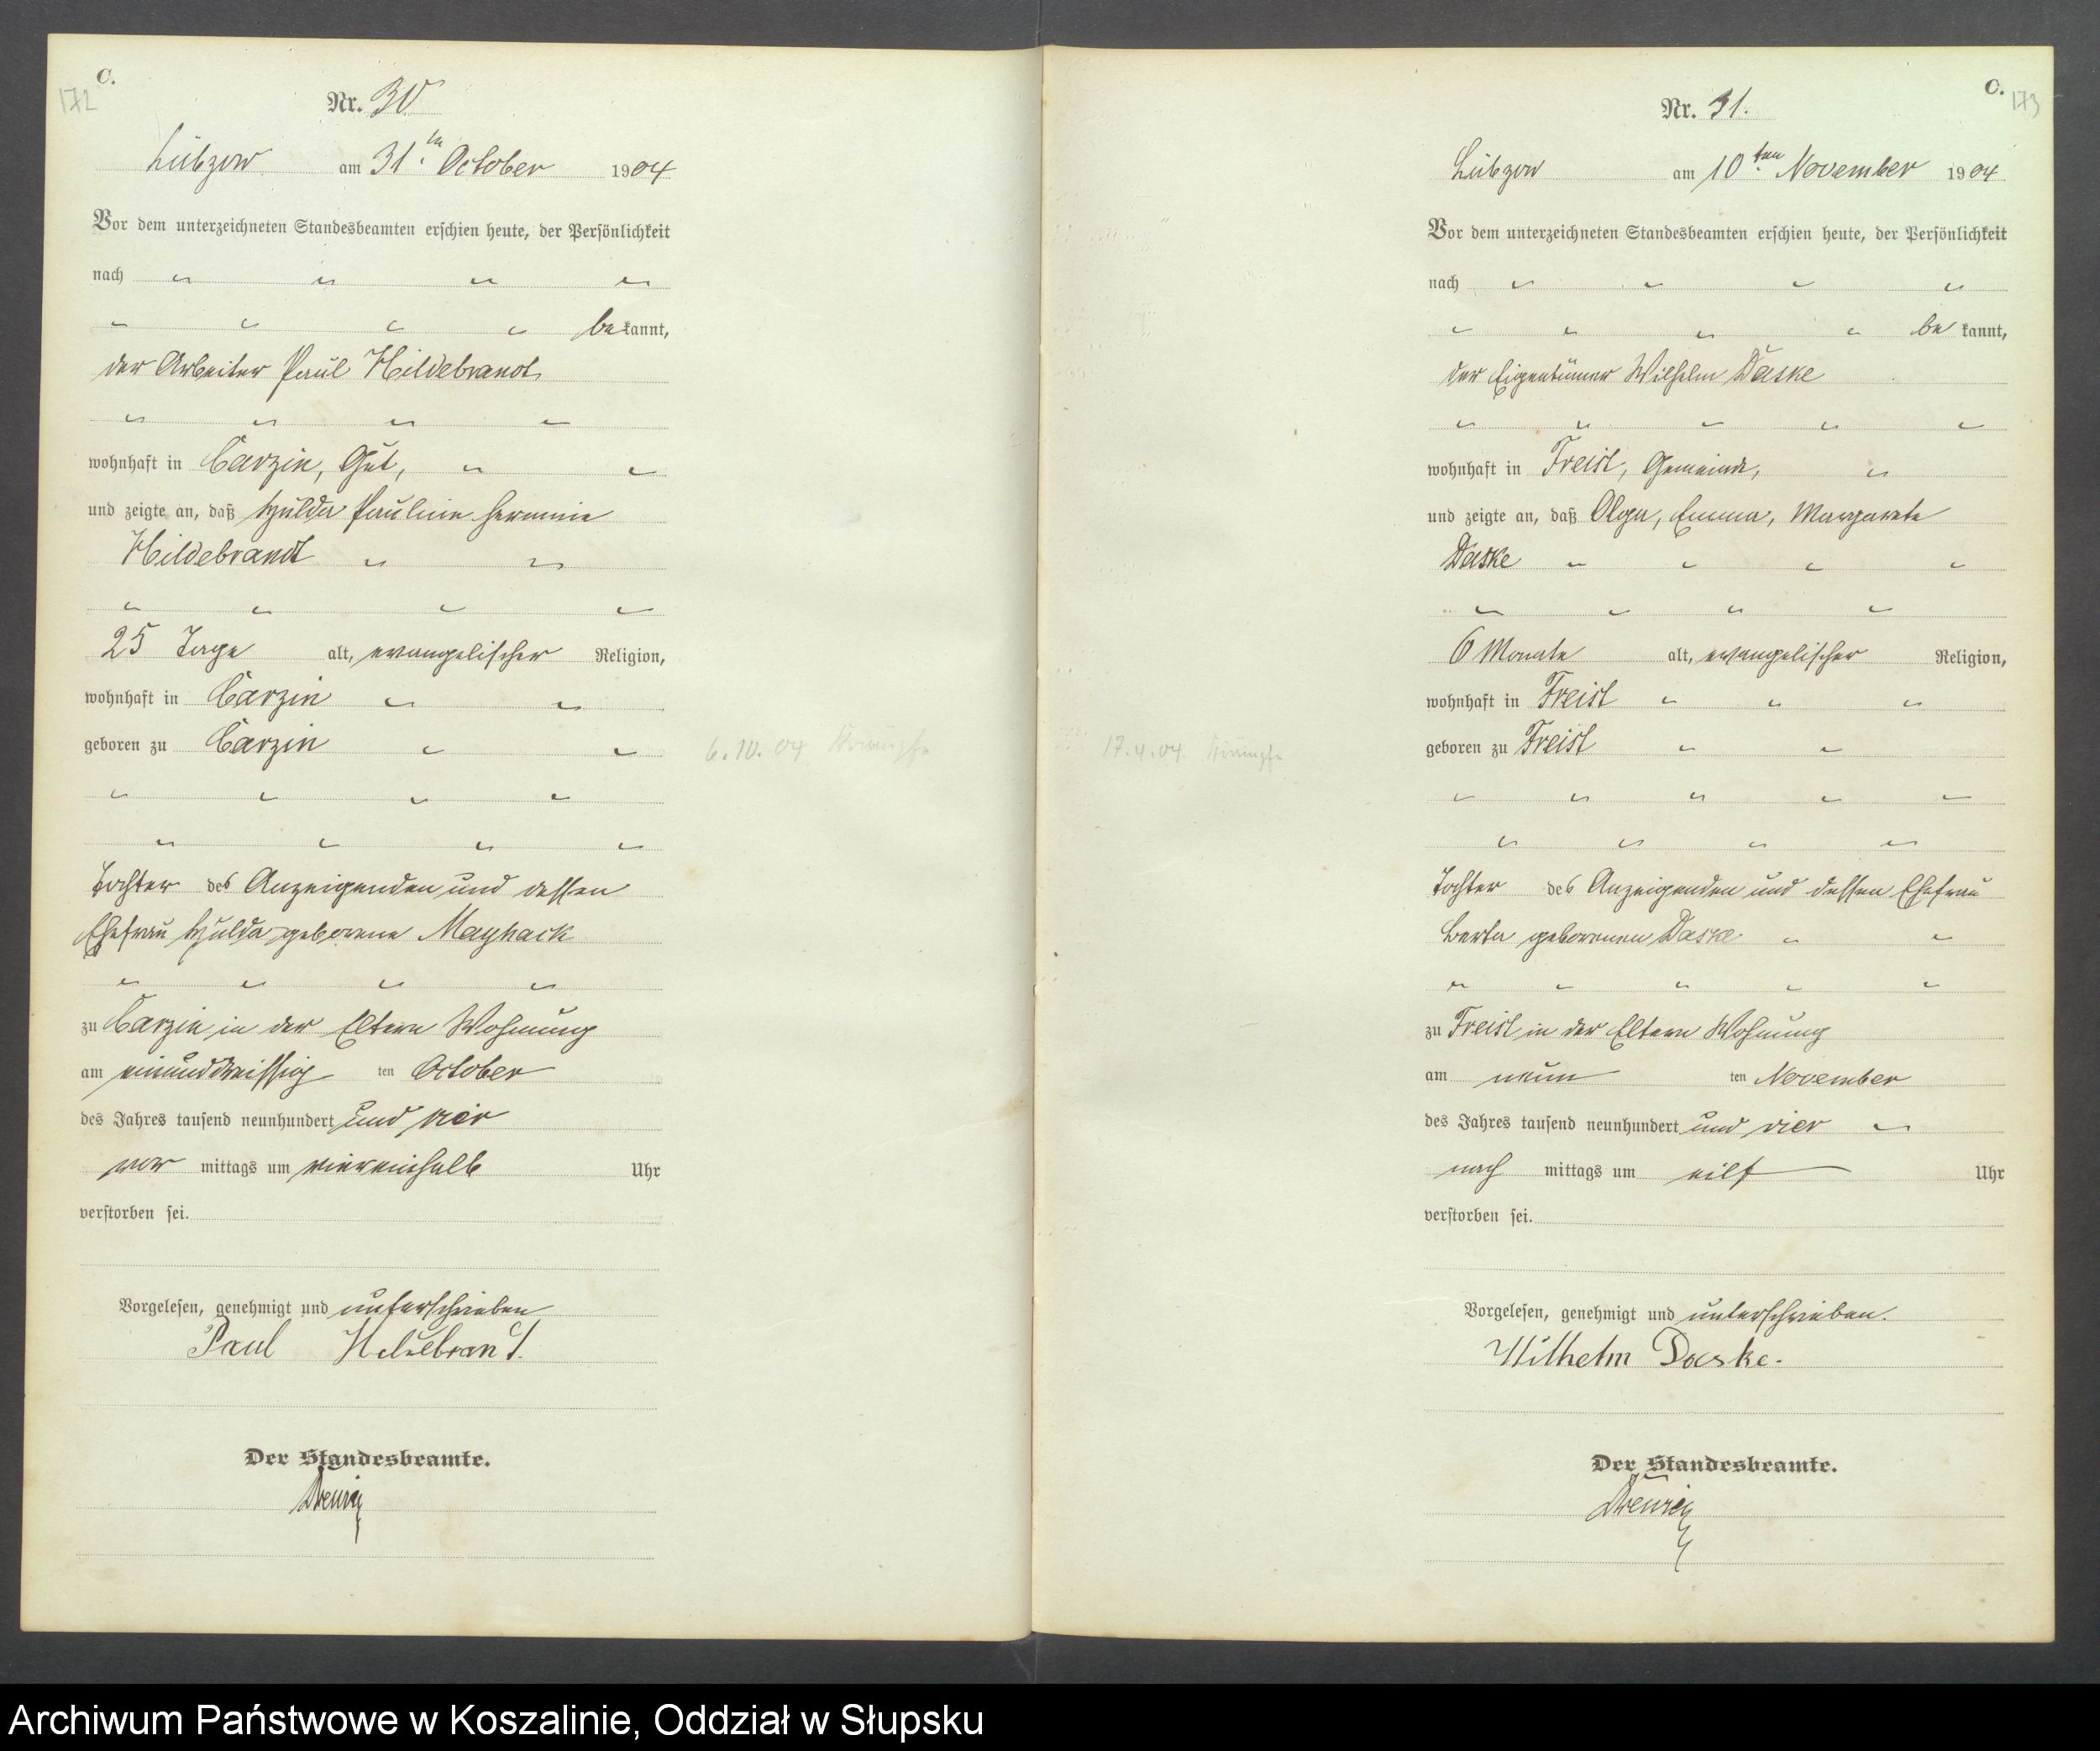 C.
172
Nr. 30
Lübzow am 31ten October 1904
Vor dem unterzeichneten Standesbeamten erschien heute, der Persönlichkeit
nach
be kannt,
der Arbeiter Paul Hildebrandt
wohnhaft in Carzin, Gut,
und zeigte an, daß Hulda Pauline Hermine
Hildebrandt
25 Tage alt, evangelischer Religion,
wohnhaft in Carzin
geboren zu Carzin
6.10.04 Krämpfe
Tochter des Anzeigenden und dessen
Ehefrau Hulda geborene Mayhack
zu Carzin in der Eltern Wohnung
am einunddreissig ten October
des Jahres tausend neunhundert und vier
vor mittags um viereinhalb Uhr
verstorben sei.
Vorgelesen, genehmigt und unterschrieben
Paul Hildebrandt
Der Standesbeamte.
C.
173
Nr. 31.
Lübzow am 10ten November 1904
Vor dem unterzeichneten Standesbeamten erschien heute, der Persönlichkeit
nach
be kannt,
der Eigentümer Wilhelm Daske
wohnhaft in Freist, Gemeinde,
und zeigte an, daß Olga, Emma, Margarete
Daske
6 Monate alt, evangelischer Religion,
wohnhaft in Freist
geboren zu Freist
17.4.04. Krämpfe
Tochter des Anzeigenden und dessen Ehefrau
Berta geborenen Daske
zu Freist in der Eltern Wohnung
am neun ten November
des Jahres tausend neunhundert und vier
nach mittags um eilf Uhr
verstorben sei.
Vorgelesen, genehmigt und unterschrieben.
Wilhelm Daske.
Der Standesbeamte.
Archiwum Państwowe w Koszalinie, Oddział w Słupsku